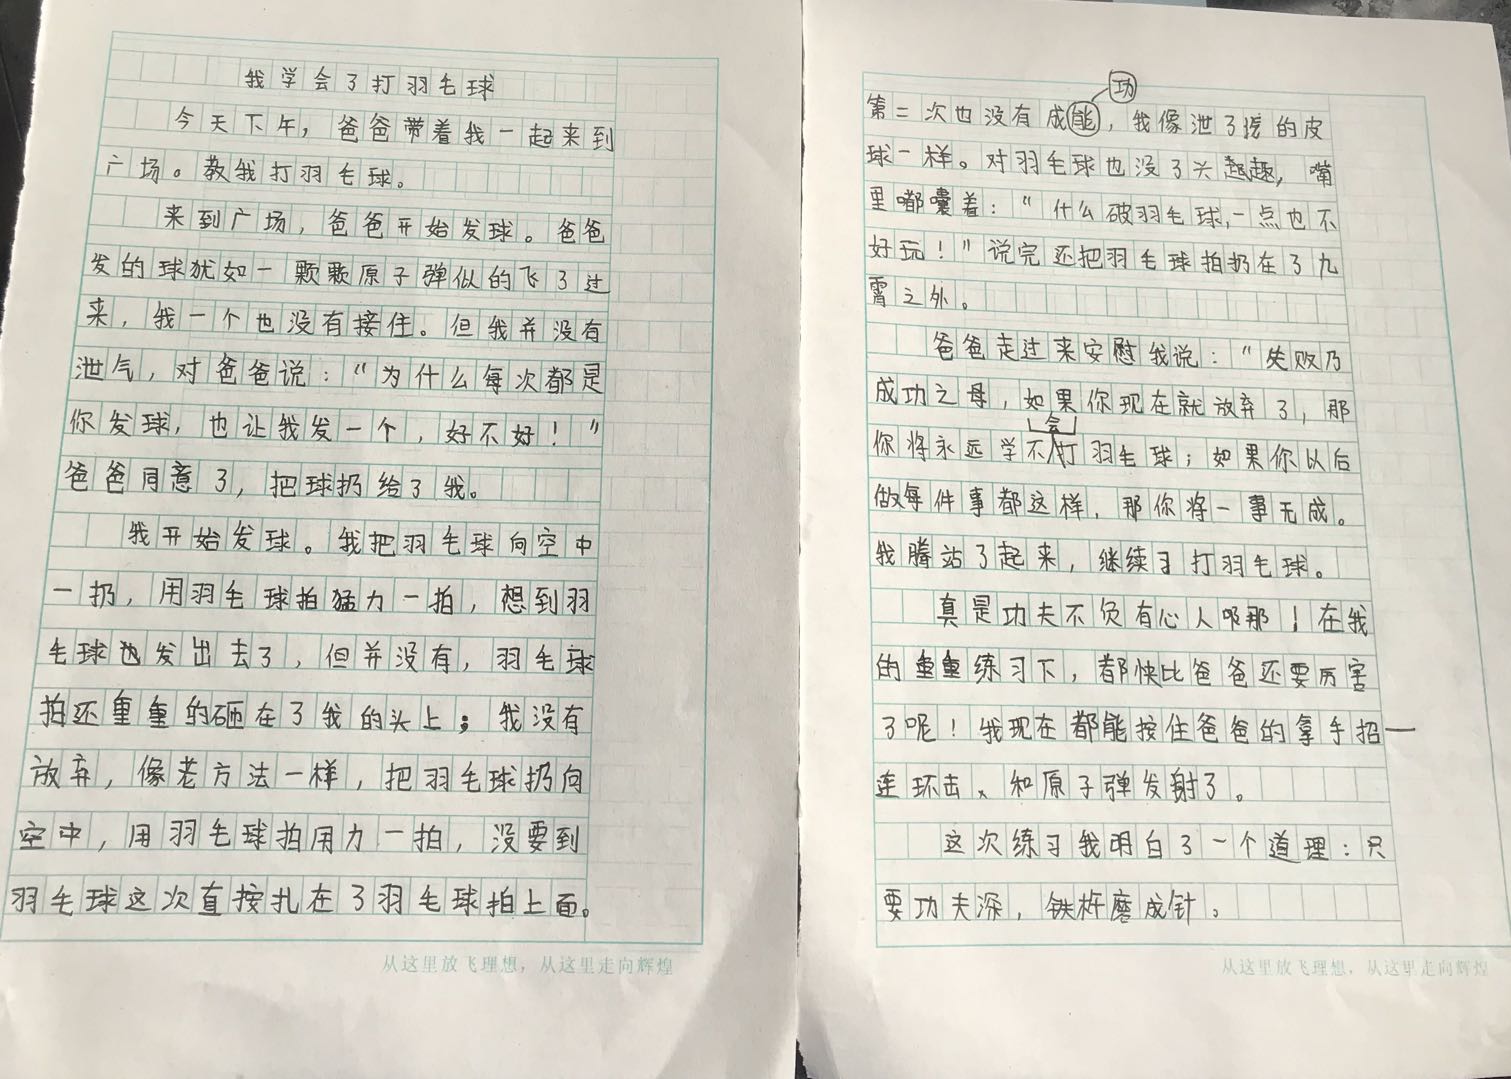 我学会了打羽毛球
今天下午，爸爸带着我一起来到
广场。教我打羽毛球。
来到广场，爸爸开始发球。爸爸
发的球犹如一颗颗原子弹似的飞了过
来，我一个也没有接住。但我并没有
泄气，对爸爸说：“为什么每次都是
你发球，也让我发一个，好不好！”
爸爸同意了，把球扔给了我。
我开始发球。我把羽毛球向空中
一扔，用羽毛球拍猛力一拍，想到羽
毛球也发出去了，但并没有，羽毛球
拍还重重的砸在了我的头上；我没有
放弃，像老方法一样，把羽毛球扔向
空中，用羽毛球拍用力一拍，没要到
羽毛球这次直接扎在了羽毛球拍上面。
从这里放飞理想，从这里走向辉煌
功
第二次也没有成能，我像泄了气的皮
球一样。对羽毛球也没了兴趣，嘴
里嘟囔着：“什么破羽毛球，一点也不
好玩！”说完还把羽毛球拍扔在了九
霄之外。
爸爸走过来安慰我说：“失败乃
成功之母，如果你现在就放弃了，那
你将永远学不会打羽毛球；如果你以后
做每件事都这样，那你将一事无成。
我腾站了起来，继续习打羽毛球。
真是功夫不负有心人呀那！在我
的重重练习下，都快比爸爸还要厉害
了呢！我现在都能接住爸爸的拿手招—
连环击、和原子弹发射了。
这次练习我明白了一个道理：只
要功夫深，铁杵磨成针。
从这里放飞理想，从这里走向辉煌